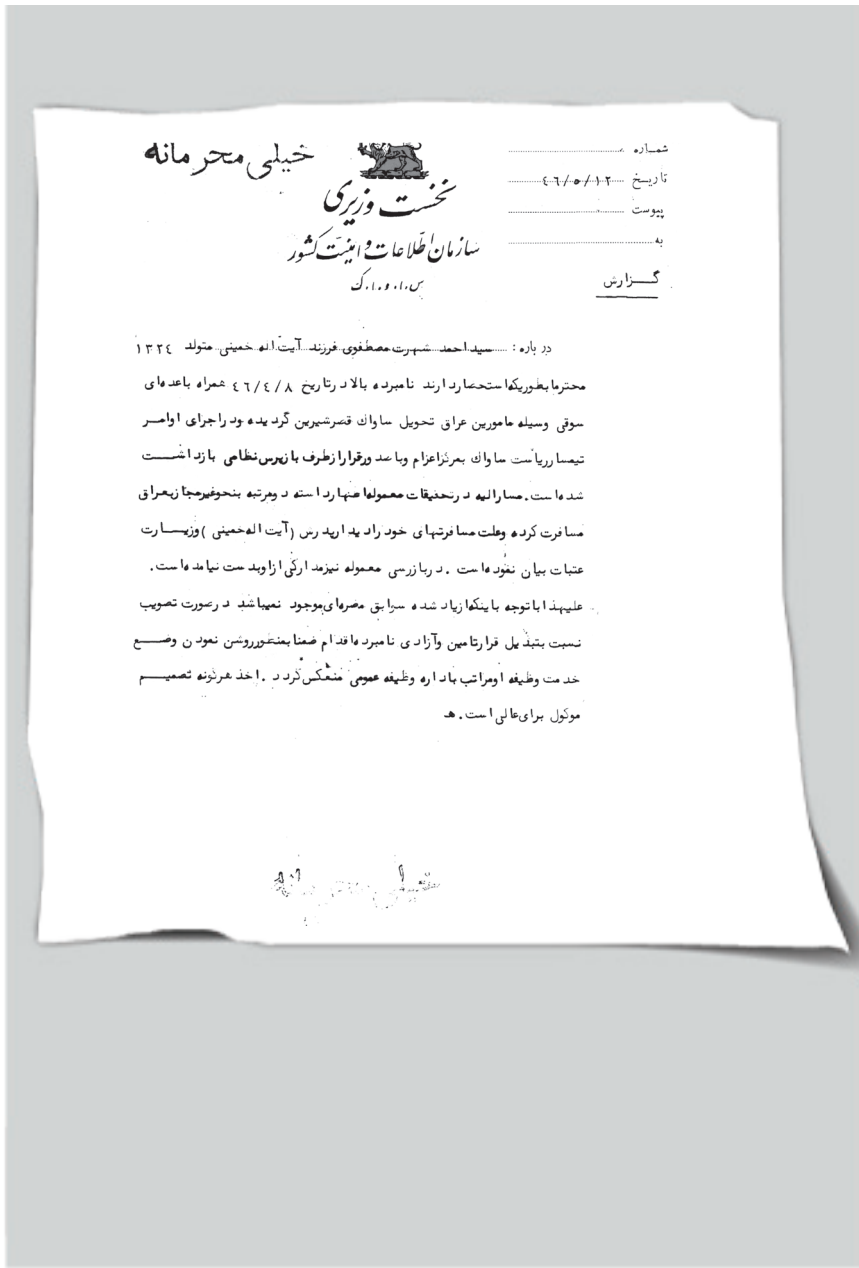 خیلی محرمانه
شماره
تاریخ ٤٦/٥/١٢
پیوست
به
نخست وزیری
سازمان اطلاعات و امنیت کشور
س.ا.و.ا.ک
گزارش
درباره: سید احمد شهرت مصطفوی فرزند آیت اله خمینی متولد ١٣٢٤
محترما بطوریکه استحضار دارند نامبرده بالا در تاریخ ٤٦/٤/٨ همراه با عده‌ای
سوقی وسیله مامورین عراق تحویل ساواک قصرشیرین گردیده بود در اجرای اوامر
تیمسار ریاست ساواک بمرکز اعزام و با صدور قرار از طرف بازپرس نظامی بازداشت
شده است. مشارالیه در تحقیقات معموله اظهار داشته دو مرتبه بنحو غیر مجاز بعراق
مسافرت کرده و علت مسافرتهای خود را دیدار پدرش (آیت اله خمینی) و زیارت
عتبات بیان نموده است. در بازرسی معموله نیز مدارکی از او بدست نیامده است.
علیهذا با توجه باینکه از یاد شده سوابق مضره‌ای موجود نمیباشد در صورت تصویب
نسبت بتبدیل قرار تامین و آزادی نامبرده اقدام ضمنا بمنظور روشن نمودن وضع
خدمت وظیفه او مراتب باداره وظیفه عمومی منعکس گردد. اخذ هرگونه تصمیم
موکول برای عالی است. هـ
خیلی محرمانه